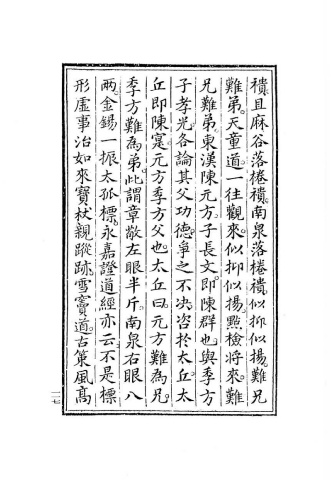 襀且麻谷落捲襀南泉落捲襀似抑似揚難兄
難弟天童道一往觀來似抑似揚㸃檢將來難
兄難弟東漢陳元方子長文即陳群也與季方
子孝光各論其父功德爭之不决咨於太丘太
丘即陳寔元方季方父也太丘曰元方難為兄
季方難為弟此謂章敬左眼半斤南泉右眼八
兩金錫一振太孤標永嘉證道經亦云不是標
形虛事治如來寶杖親蹤跡雪竇道古策風髙